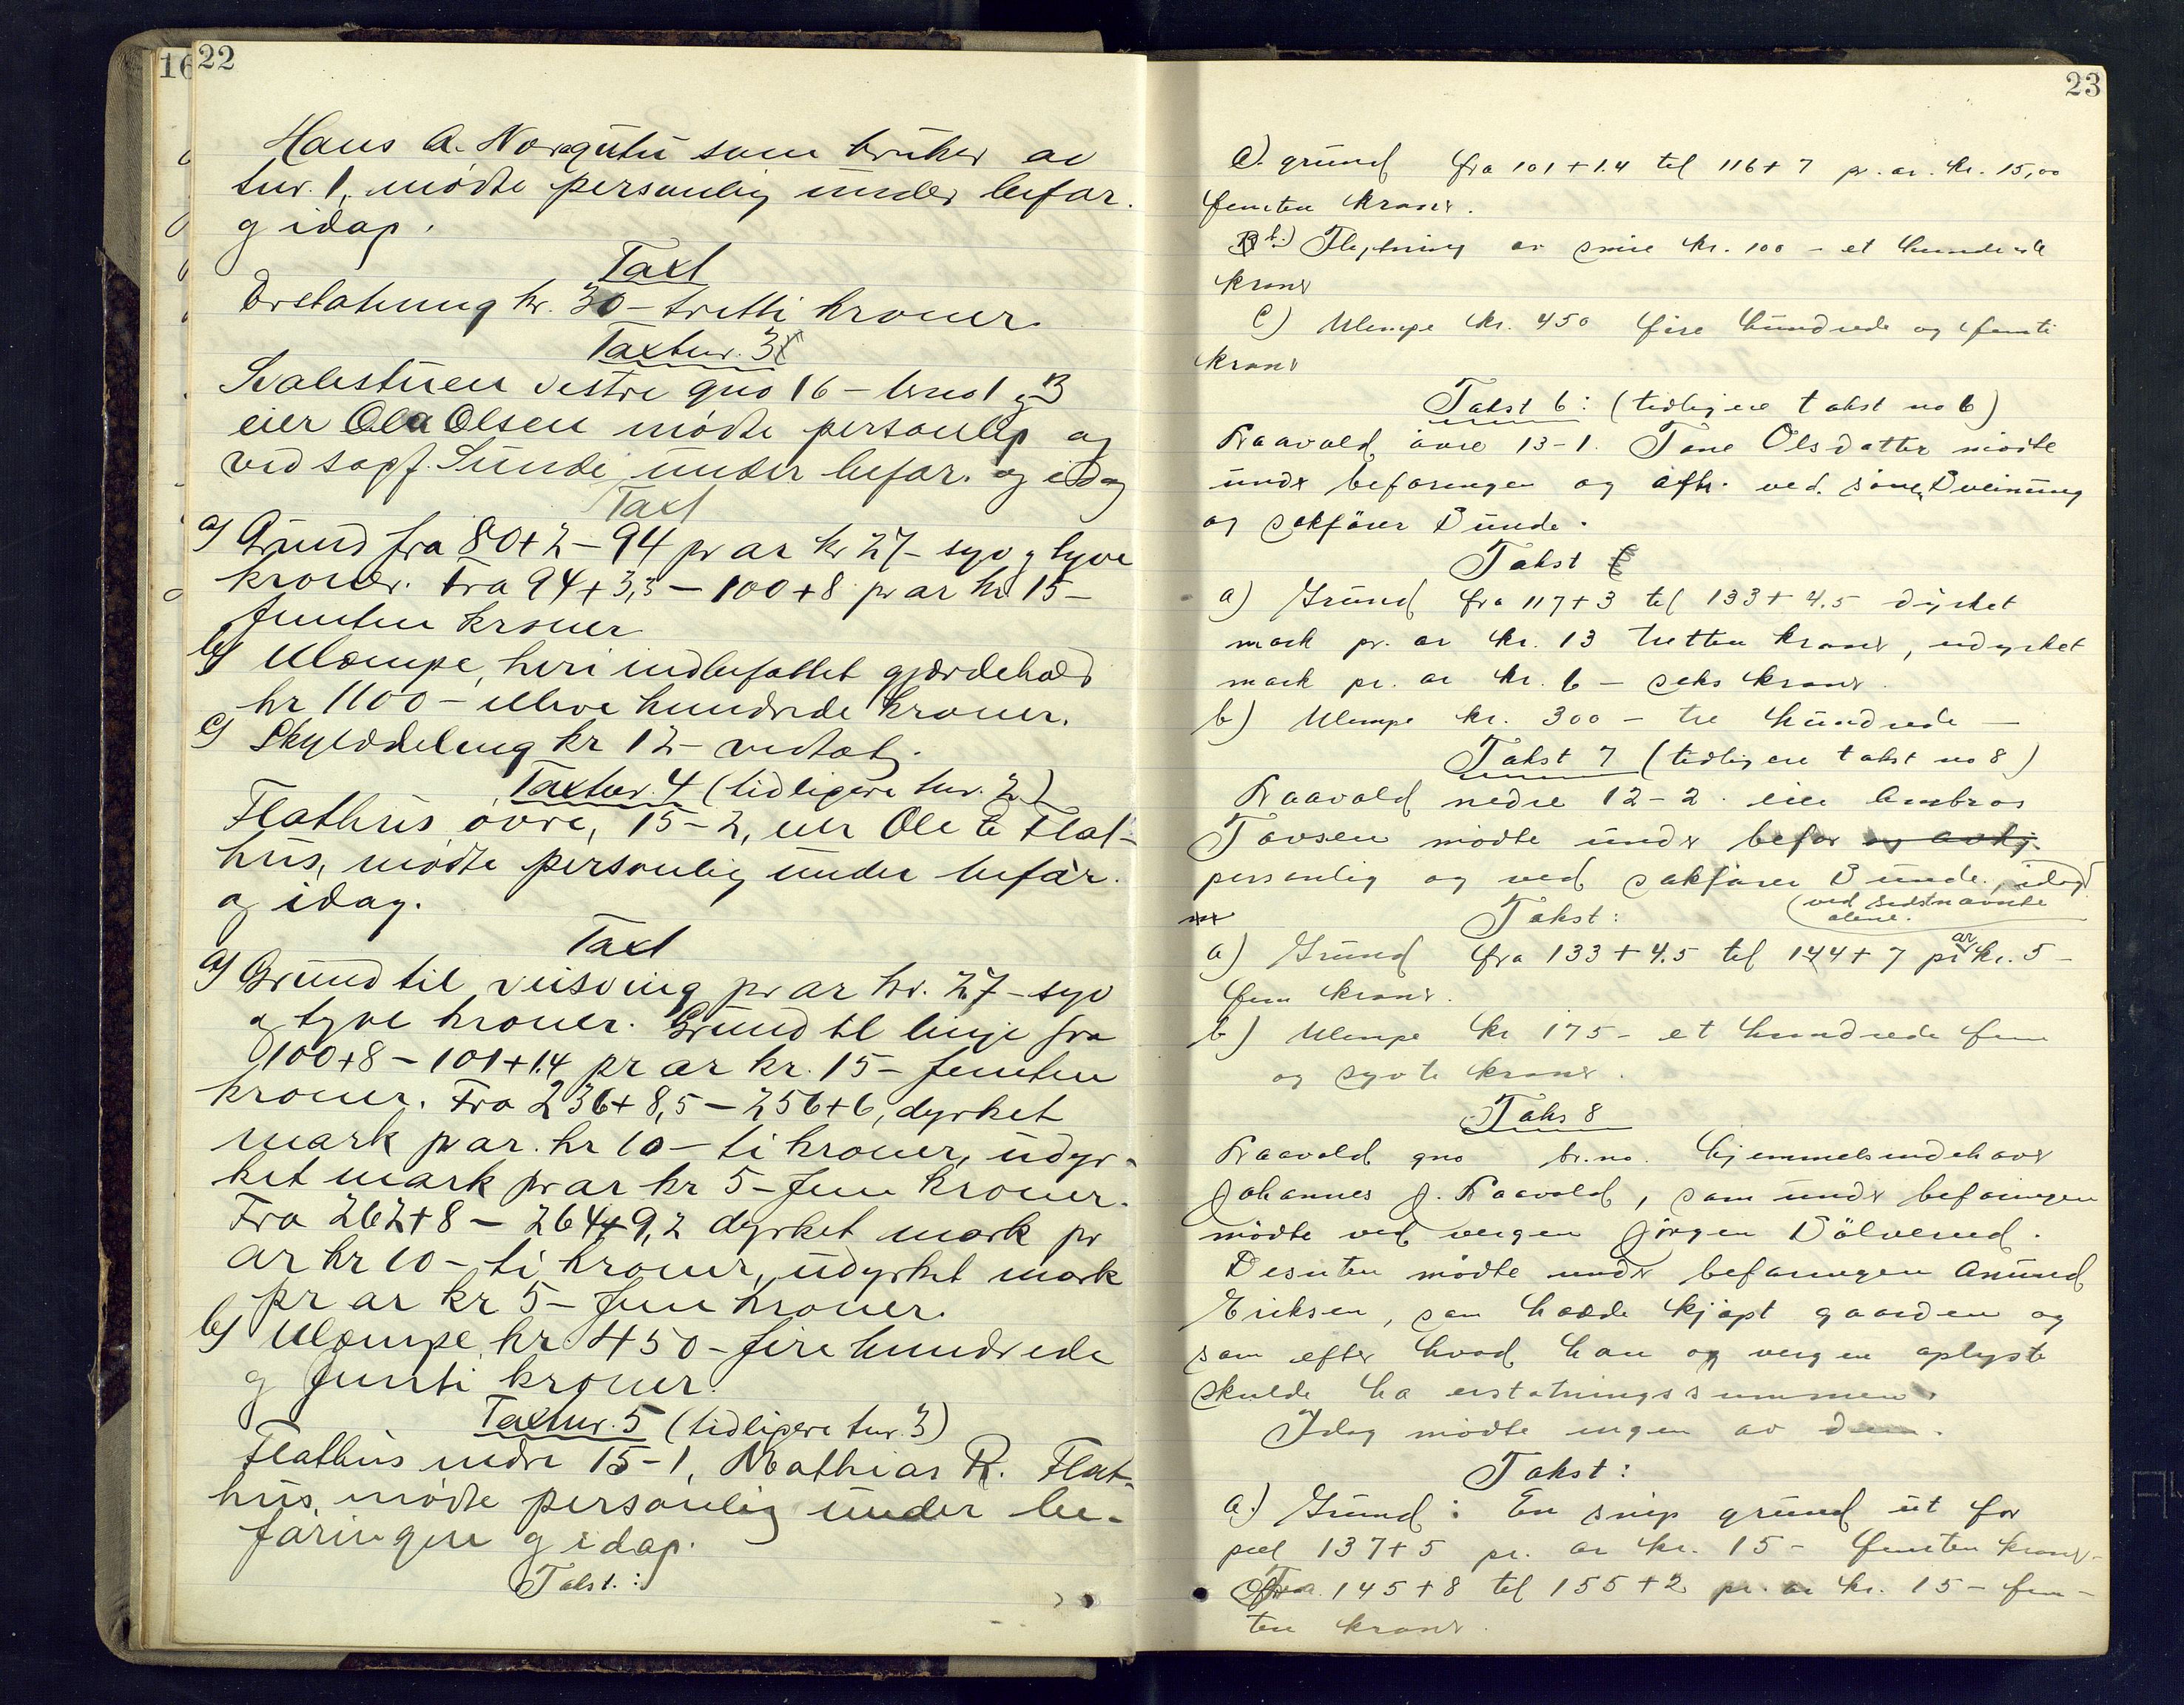 16
22
Hans A. Noregutu som bruker av
tnr. 1, mødte personlig under befar.
og idag.
Taxt
Erstatning kr. 30 - tretti kroner.
Taxtnr. 3
Svalestuen vestre gno 16 - brno 1 og 3
eier Ola Olsen mødte personlig og
ved sagf. Sunde under befar. og idag
Taxt
a) Grund fra 80+2 - 94 pr ar kr 27 - syv og tyve
kroner. Fra 94+3,3 - 100+8 pr ar kr 15 -
femten kroner
b) Ulempe, heri indbefattet gjærdehold
kr 1100 - elleve hundrede kroner.
c) Skylddeling kr 12 - vedtat.
Taxtnr. 4 (tidligere tnr. 2)
Flathus øvre, 15-2, eier Ole E Flat-
hus, mødte personlig under befar.
og idag.
Taxt
a) Grund til veisving pr ar kr. 27 - syv
og tyve kroner. Grund til linje fra
100+8 - 101+1.4 pr ar kr. 15 - femten
kroner. Fra 236+8,5 - 256+6, dyrket
mark pr ar. kr 10 - ti kroner, udyr-
ket mark pr ar kr 5 - fem kroner.
Fra 262+8 - 264+9,2 dyrket mark pr
ar kr 10 - ti kroner, udyrket mark
pr ar kr 5 - fem kroner.
b) Ulempe kr. 450 - fire hundrede
og femti kroner.
Taxtnr. 5 (tidligere tnr. 3)
Flathus nedre 15-1, Mathias R. Flat-
hus, mødte personlig under be-
faringen og idag.
Takst.:
23
a). grund fra 101+1.4 til 116+7 pr. ar. kr. 15,00
femten kroner.
b.) Flytning av smie kr. 100 - et hundrede
kroner
c) Ulempe kr. 450 fire hundrede og femti
kroner
Takst 6: (tidligere takst no 6)
Raavold øvre 13-1. Tone Olsdatter mødte
under befaringen og ved sønnen
og sakfører Sunde.
Takst
a) Grund fra 117+3 til 133+4.5 dyrket
mark pr. ar kr. 13 tretten kroner, udyrket
mark pr. ar kr. 6 - seks kroner.
b) Ulempe kr. 300 - tre hundrede -
Takst 7 (tidligere takst no 8)
Raavold nedre 12-2. eier Ambros
Tovsen mødte under befar
personlig og ved sakfører Sunde, idag
ved sidstnævnte
alene.
Takst:
a) Grund fra 133+4.5 til 144+7 pr ar kr. 5 -
fem kroner.
b) Ulempe kr 175 - et hundrede fem
og sytti kroner.
Taks 8
Raavold gno br.no. hjemmelsindehaver
Johannes J. Raavold, som under befaringen
mødte ved vergen Jørgen Sølverud.
Desuten mødte under befaringen Amund
Eriksen, som hadde kjøpt gaarden og
som efter hvad han og vergen oplyste
skulde ha erstatningssummen.
Idag mødte ingen av dem.
Takst:
a.) Grund: En snip grund ut for
pel 137+5 pr. ar kr. 15 - femten kroner -
Fra 145+8 til 155+2 pr. ar kr. 15 - fem-
ten kroner.